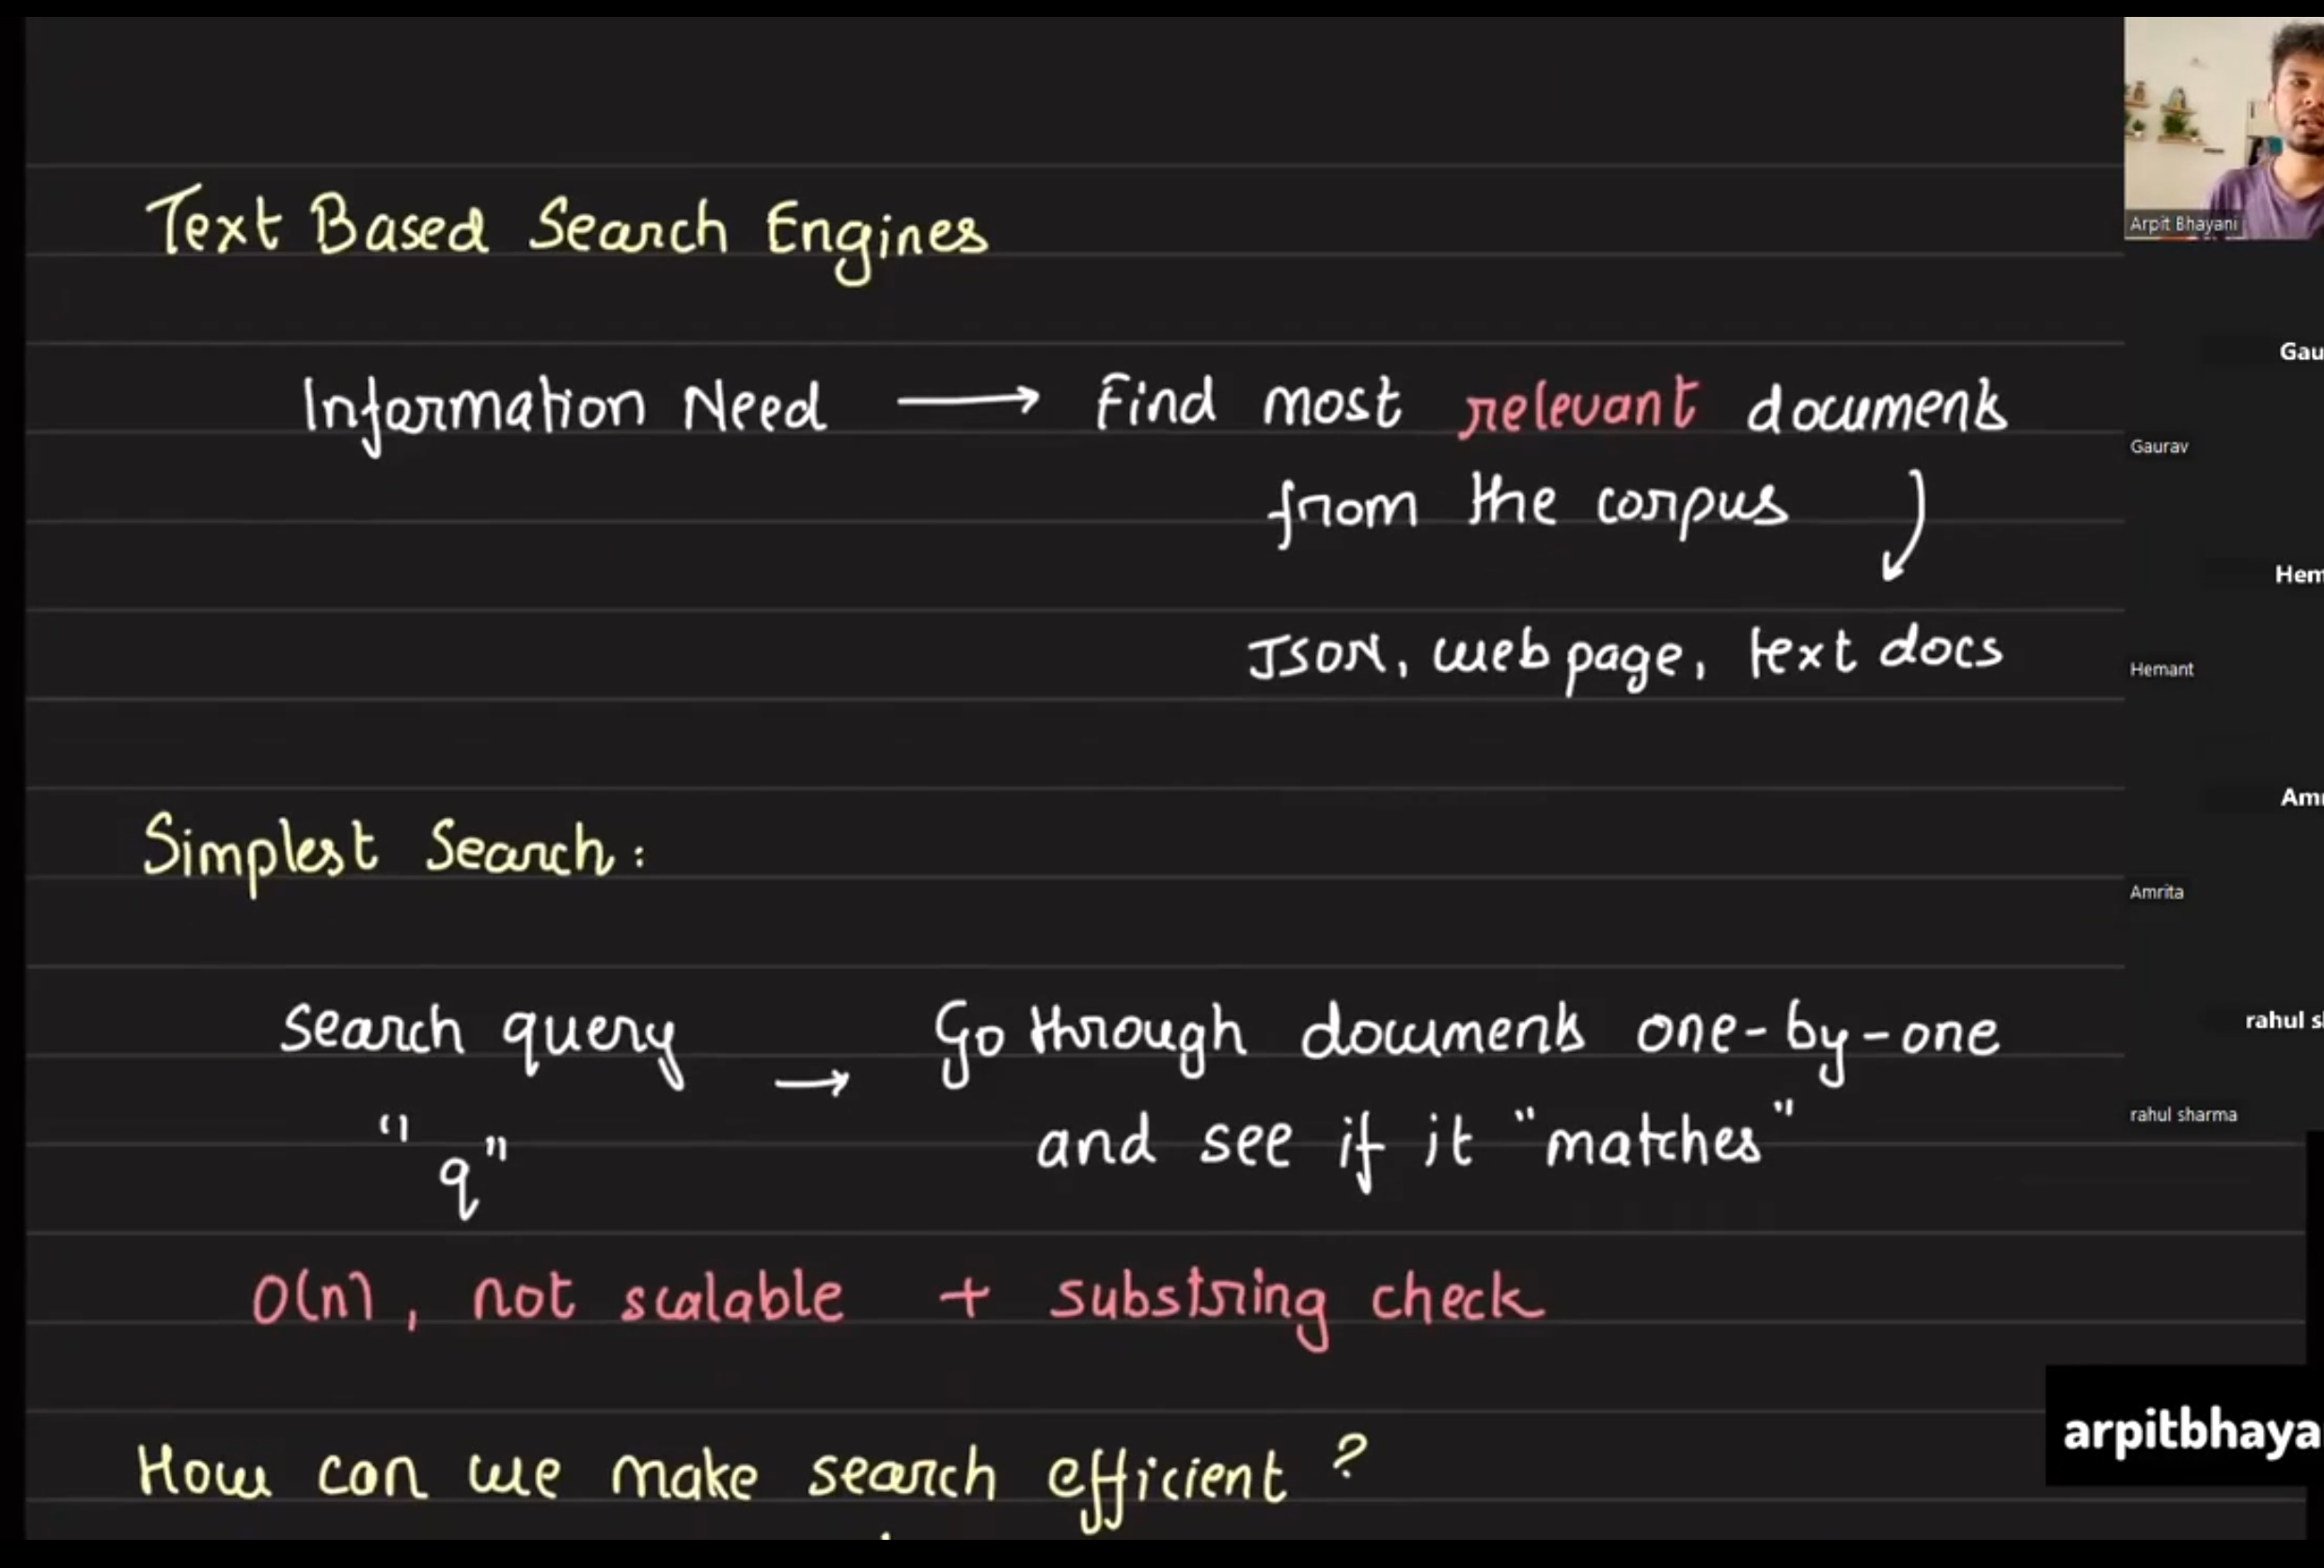 Text Based Search Engines
Information Need → Find most relevant documents
from the corpus
JSON, web page, text docs
Simplest Search:
search query → Go through documents one-by-one
"q" and see if it "matches"
O(n), not scalable + substring check
How can we make search efficient?
Arpit Bhayani
Gau
Gaurav
Hem
Hemant
Am
Amrita
rahul s
rahul sharma
arpitbhaya